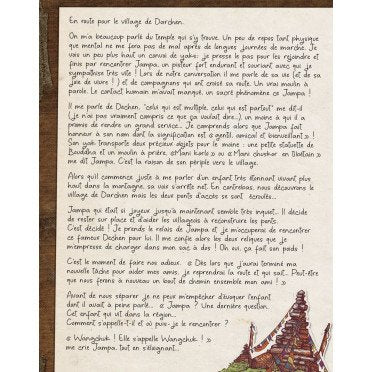 En route pour le village de Darchen.
On m'a beaucoup parlé du temple qui s'y trouve. Un peu de repos tant physique
que mental ne me fera pas de mal après de longues journées de marche. Je
vois un peu plus haut un convoi de yaks: je presse le pas pour les rejoindre et
finis par rencontrer Jampa, un porteur fort endurant et souriant avec qui je
sympathise très vite ! Lors de notre conversation il me parle de sa vie (et de sa
joie de vivre !) et des compagnons qui ont croisé sa route. Un vrai moulin à
parole. Le contact humain m'avait manqué, un sacré phénomène ce Jampa !
Il me parle de Dechen, "celui qui est multiple, celui qui est partout" me dit-il
(je n'ai pas vraiment compris ce que ça voulait dire...), un moine à qui il a
promis de rendre un grand service... Je comprends alors que Jampa fait
honneur à son nom dont la signification est « gentil, amical et bienveillant » !
Son yak transporte deux précieux objets pour le moine : une petite statuette de
Bouddha et un moulin à prière, « Mani korlo » ou « Mani chuskor en tibétain »
me dit Jampa. C'est la raison de son périple vers le village.
Alors qu'il commence juste à me parler d'un enfant très étonnant vivant plus
haut dans la montagne, sa voix s'arrête net. En contrebas, nous découvrons le
village de Darchen mais les deux ponts d'accès se sont écroulés...
Jampa qui était si joyeux jusqu'à maintenant semble très inquiet... Il décide
de rester sur place et d'aider les villageois à reconstruire les ponts.
C'est décidé ! Je prends le relais de Jampa et je m'occuperai de rencontrer
ce fameux Dechen pour lui. Il me confie alors les deux reliques que je
m'empresse de charger dans mon sac à dos ! Oh oui, ça fait son poids !
C'est le moment de faire nos adieux. « Dès lors que j'aurai terminé ma
nouvelle tâche pour aider mes amis, je reprendrai la route et qui sait... Peut-être
que nous ferons à nouveau un bout de chemin ensemble mon ami ! »
Avant de nous séparer je ne peux m'empêcher d'évoquer l'enfant
dont il avait à peine parlé... « Jampa ? Une dernière question...
Cet enfant qui vit dans la région...
Comment s'appelle-t-il et où puis-je le rencontrer ?
« Wangchuk ! Elle s'appelle Wangchuk ! »
me crie Jampa, tout en s'éloignant...